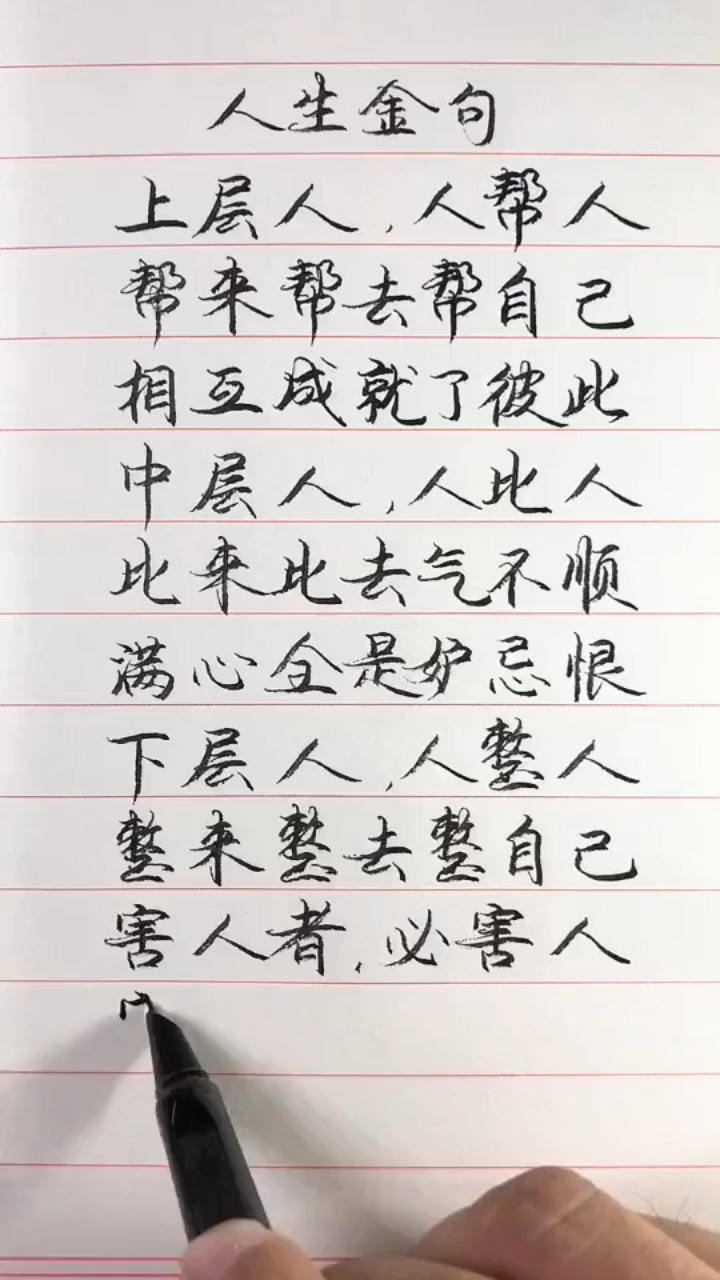 人生金句
上层人,人帮人
帮来帮去帮自己
相互成就了彼此
中层人,人比人
比来比去气不顺
满心全是妒忌恨
下层人,人整人
整来整去整自己
害人者,必害人